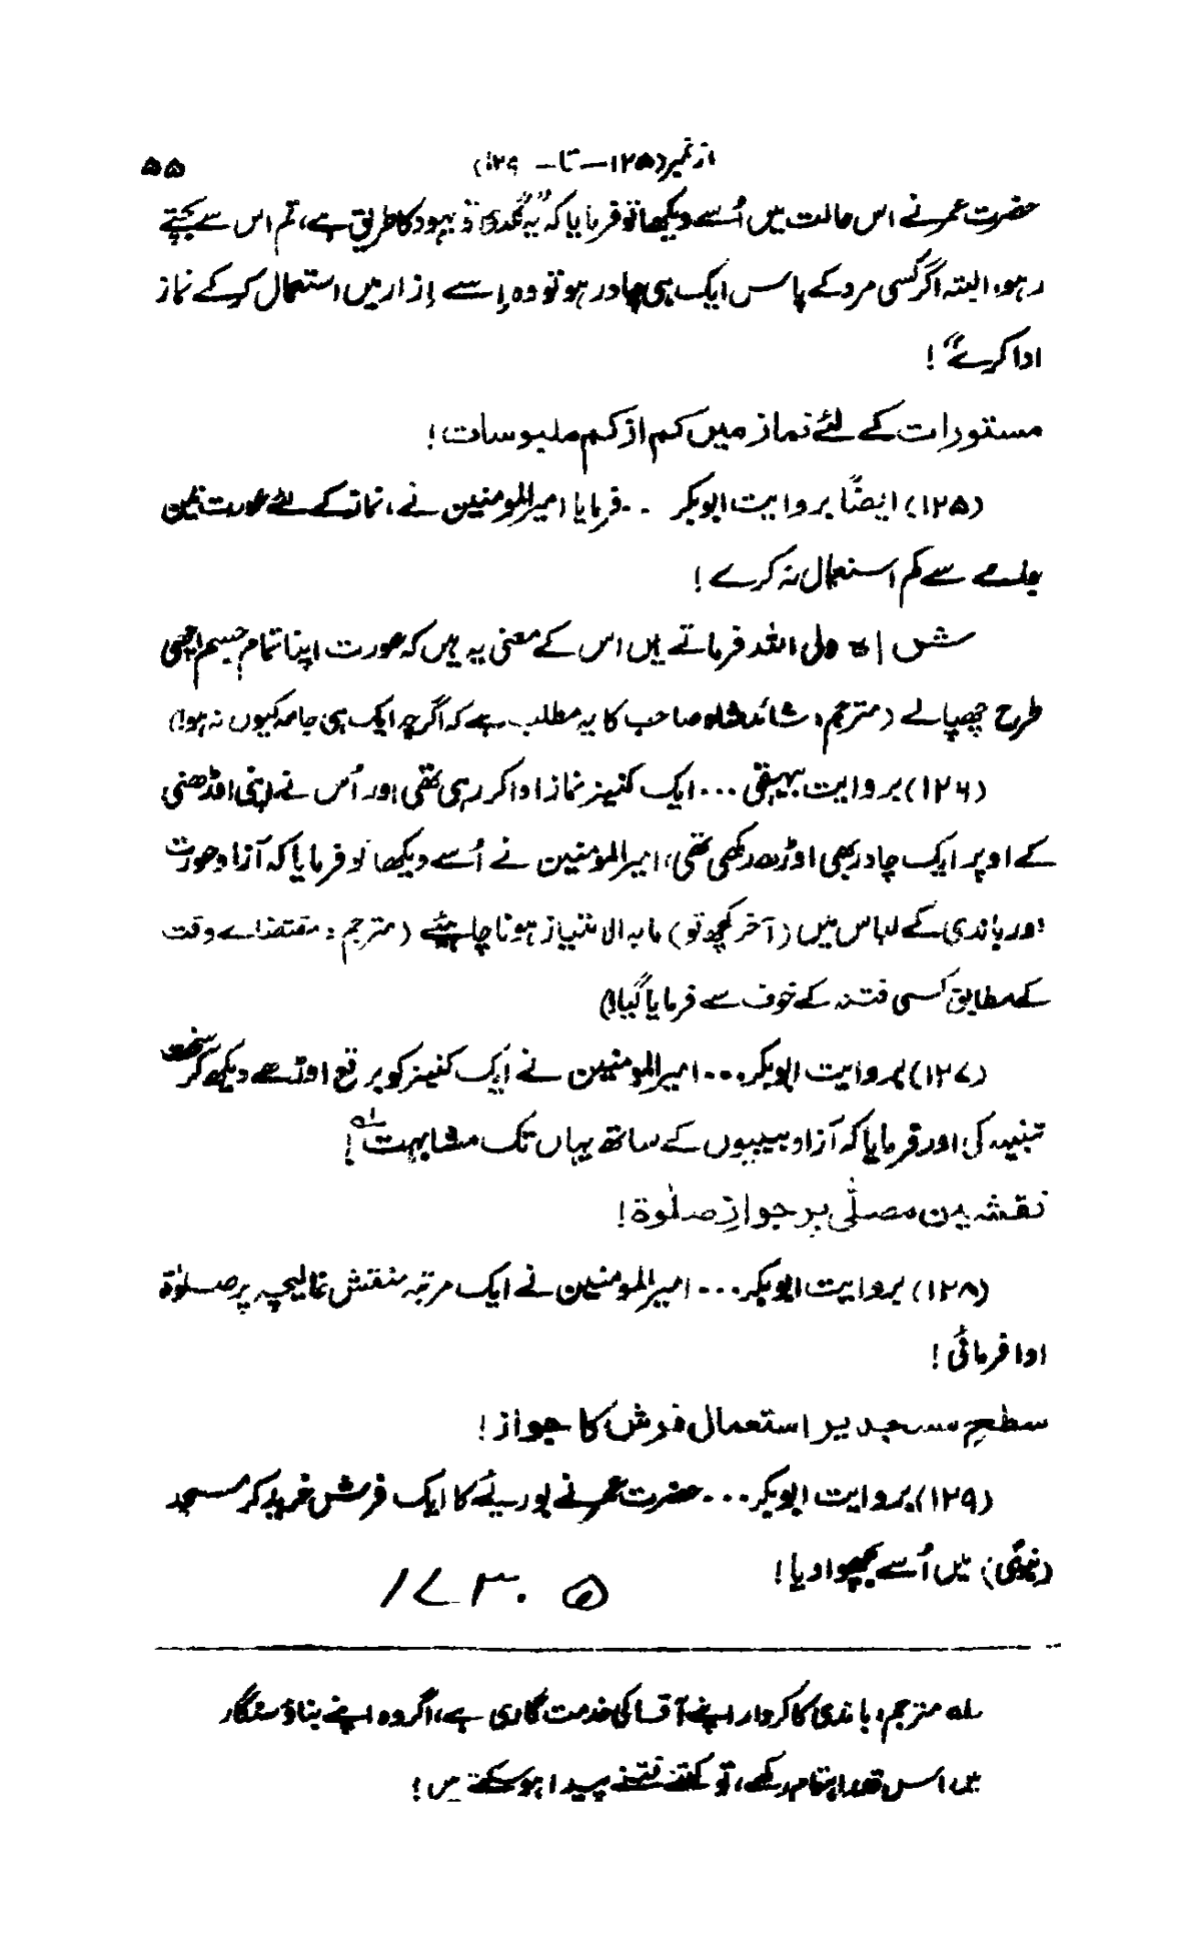 از نمبر (۱۲۵ — تا — ۱۲۹) ۵۵
حضرت عمر نے اس حالت میں اُسے دیکھا تو فرمایا کہ "یہ یہود کا طریق ہے، تم اس سے بچتے
رہو، البتہ اگر کسی مرد کے پاس ایک ہی چادر ہو تو وہ اِسے اِزار میں استعمال کر کے نماز
ادا کرے"!
مستورات کے لئے نماز میں کم از کم ملبوسات!
(۱۲۵) ایضًا بروایت ابوبکر ... فرمایا امیرالمومنین نے، نماز کے لئے عورت تین
جامے سے کم استعمال نہ کرے!
ش| شاہ ولی اللہ فرماتے ہیں اس کے معنی یہ ہیں کہ عورت اپنا تمام جسم اچھی
طرح چھپالے (مترجم، شائد شاہ صاحب کا یہ مطلب ہے کہ اگرچہ ایک ہی جامہ کیوں نہ ہو!)
(۱۲۶) بروایت بیہقی ... ایک کنیز نماز ادا کر رہی تھی اور اُس نے اپنی اوڑھنی
کے اوپر ایک چادر بھی اوڑھ رکھی تھی، امیرالمومنین نے اُسے دیکھا تو فرمایا کہ آزاد عورت
اور باندی کے لباس میں (آخر کچھ تو) مابہ الامتیاز ہونا چاہیئے (مترجم: مقتضائے وقت
کے مطابق کسی فتنہ کے خوف سے فرمایا گیا!)
(۱۲۷) بروایت ابوبکر ... امیرالمومنین نے ایک کنیز کو برقع اوڑھے دیکھ کر سخت
تنبیہ کی اور فرمایا کہ آزاد بیبیوں کے ساتھ یہاں تک مشابہت لہ!
نقشین مصلّٰی پر جوازِ صلوٰۃ!
(۱۲۸) بروایت ابوبکر ... امیرالمومنین نے ایک مرتبہ منقش غالیچہ پر صلوٰۃ
ادا فرمائی!
سطحِ مسجد پر استعمال فرش کا جواز!
(۱۲۹) بروایت ابوبکر ... حضرت عمر نے بوریئے کا ایک فرش خرید کر مسجد
(نبوی) میں اُسے بچھوا دیا!
۱۷۳۰ ۵
لہ مترجم: باندی کا کردار اپنے آقا کی خدمت گاری ہے، اگر وہ اپنے بناؤ سنگار
میں اس قدر اہتمام رکھے، تو کتنے فتنے پیدا ہو سکتے ہیں!